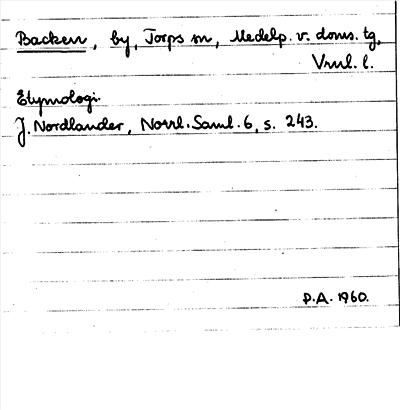 Backen, by, Torps sn, Medelp. v. doms. tg,
Vnrl. l.
Etymologi.
J. Nordlander, Norrl. Saml. 6, s. 243.
P.A. 1960.